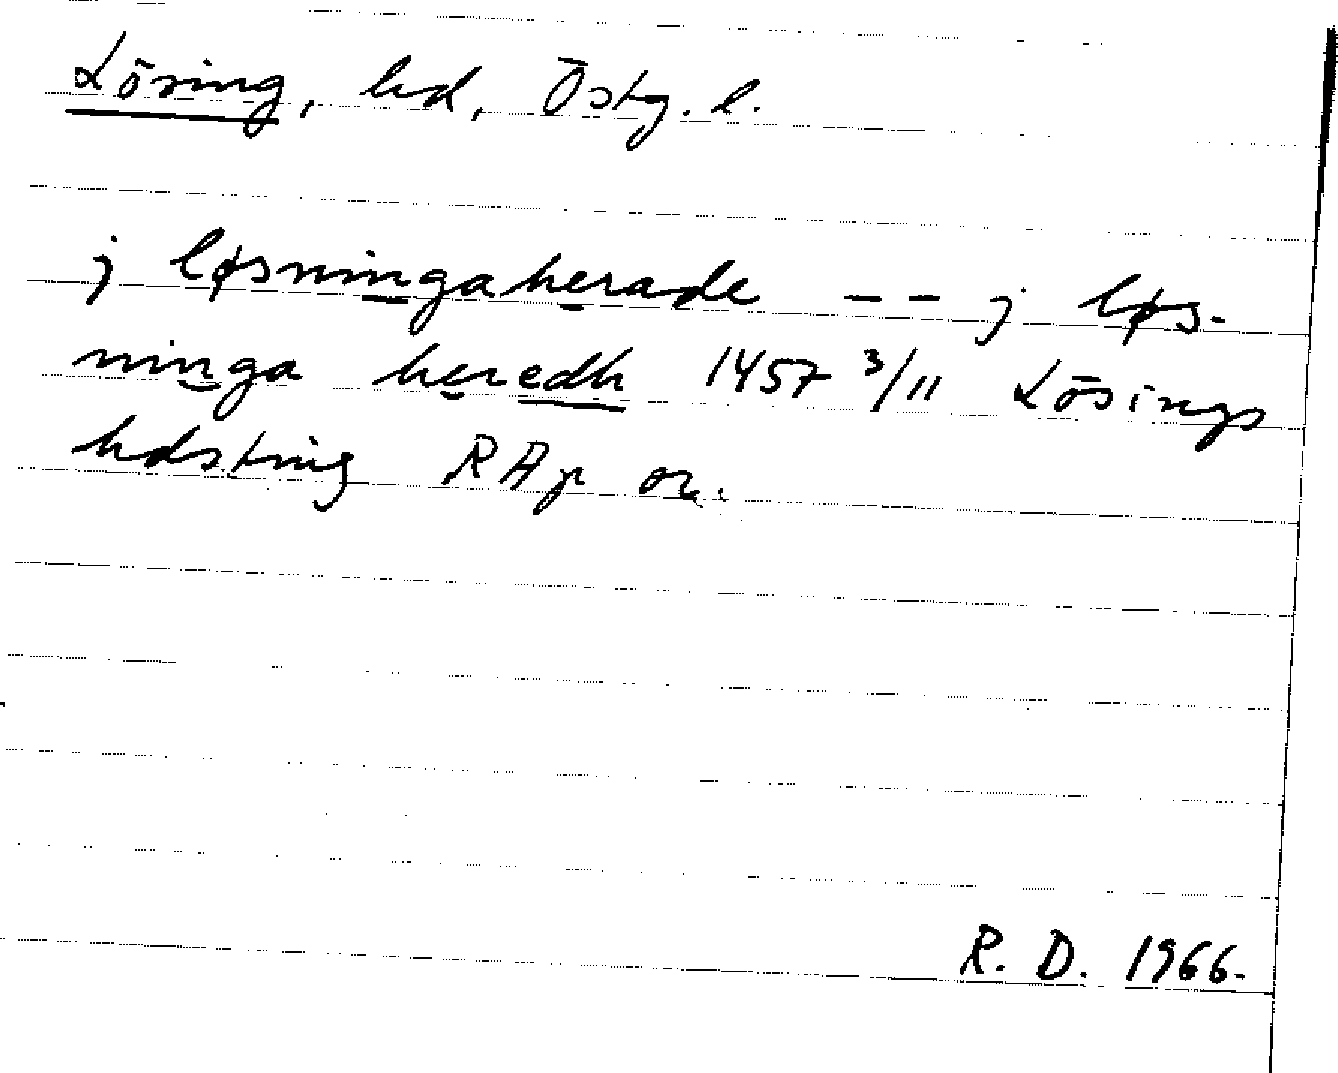 Lösing, hd, Östg. l.
j løsningaherade -- j løs-
ninga heredh 1457 3/11 Lösings
hdsting RAp or.
R. D. 1966.